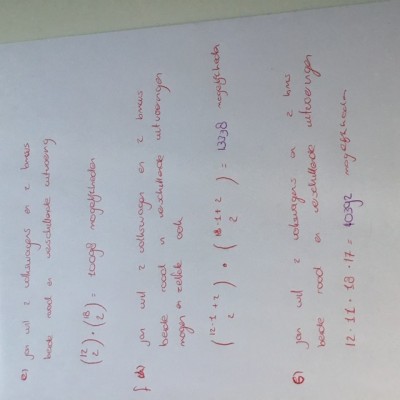 e) jan wil 2 volkswagens en 2 bmws
beide rood en verschillende uitvoering
(12 2) · (18 2) = 10098 mogelijkheden
jan wil 2 volkswagen en 2 bmws
beide rood in verschillende uitvoeringen
mogen er zelfde ook
(12-1+2 2) · (18-1+2 2) = 13338 mogelijkheden
jan wil 2 volkswagens en 2 bmws
beide rood en verschillende uitvoeringen
12 · 11 · 18 · 17 = 40392 mogelijkheden